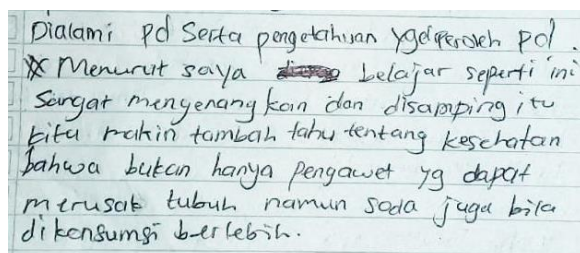 Dialami pd serta pengetahuan yg diperoleh pd.
* Menurut saya belajar seperti ini
Sangat menyenangkan dan disamping itu
kita makin tambah tahu tentang kesehatan
bahwa bukan hanya pengawet yg dapat
merusak tubuh namun soda juga bila
dikonsumsi berlebih.